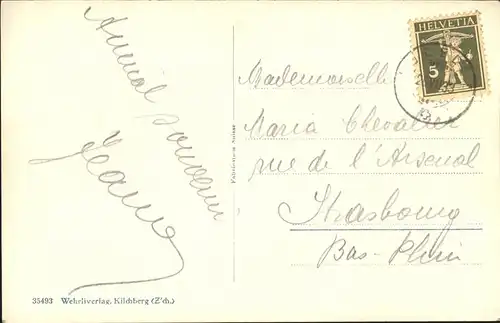 Amical
souvenir
Jeanne
HELVETIA
5
Mademoiselle
Maria Chevalier
rue de l'Arsenal
Strasbourg
Bas-Rhin
35493 Wehrliverlag, Kilchberg (Z'ch.)